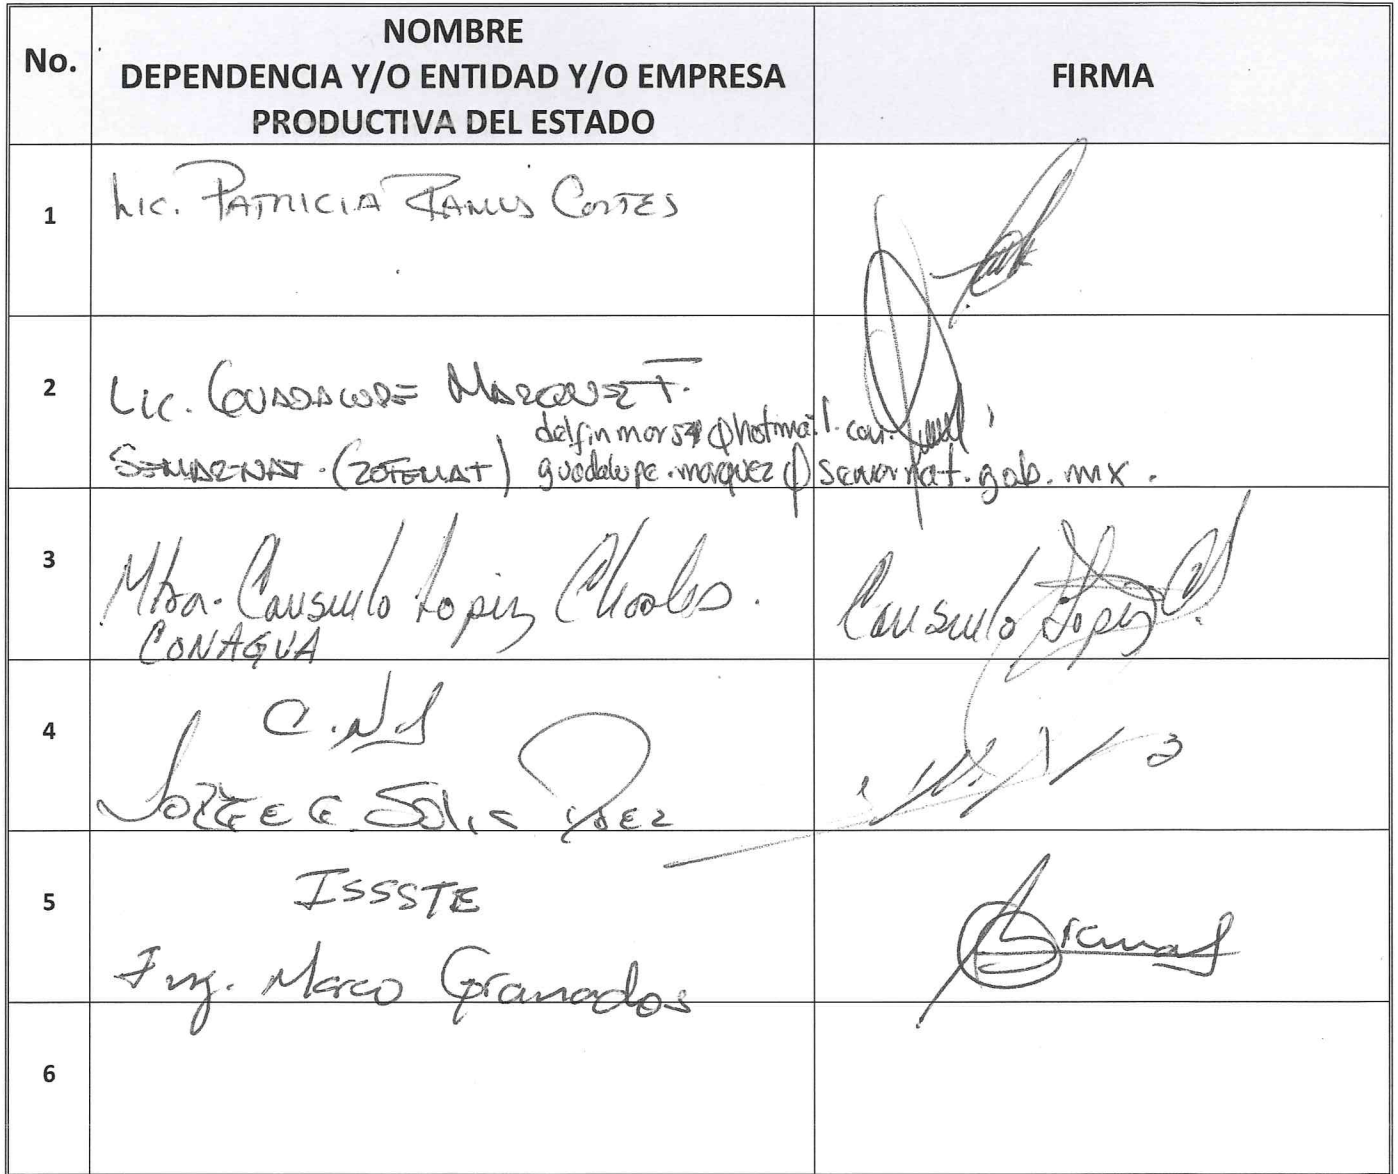 No.
NOMBRE
DEPENDENCIA Y/O ENTIDAD Y/O EMPRESA
PRODUCTIVA DEL ESTADO
FIRMA
1
Lic. PATRICIA RAMOS CORTES
2
Lic. GUADALUPE MARQUEZ T.
delfinmor54@hotmail.com
SEMARNAT. (ZOFEMAT) guadalupe.marquez@semarnat.gob.mx.
3
Mtra. Consuelo Lopez
CONAGUA
Consuelo Lopez C
4
JORGE G. SOLIS
5
ISSSTE
Ing. Marco Granados
6